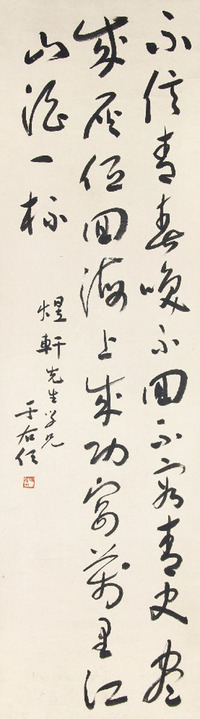 不信青春喚不回不容青史盡
成灰低回海上成功宴萬里江
山酒一杯
煜軒先生學兄
于右任